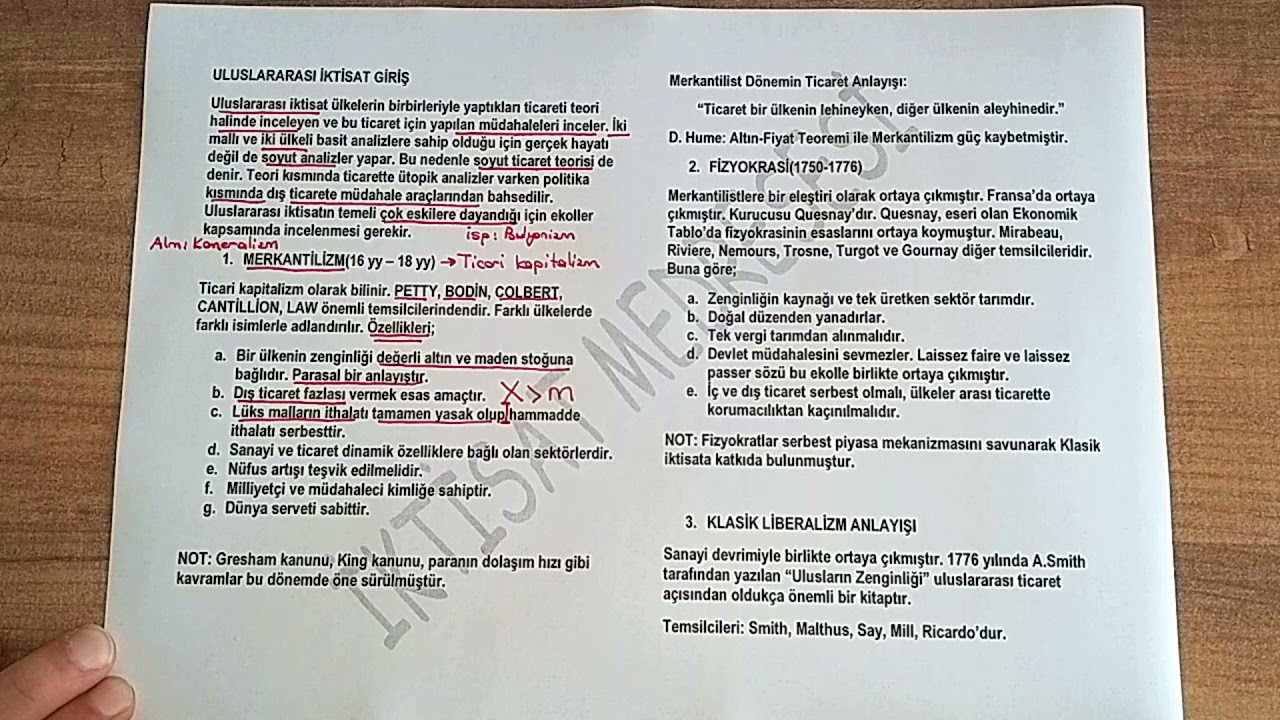 ULUSLARARASI İKTİSAT GİRİŞ
Uluslararası iktisat ülkelerin birbirleriyle yaptıkları ticareti teori
halinde inceleyen ve bu ticaret için yapılan müdahaleleri inceler. İki
mallı ve iki ülkeli basit analizlere sahip olduğu için gerçek hayatı
değil de soyut analizler yapar. Bu nedenle soyut ticaret teorisi de
denir. Teori kısmında ticarette ütopik analizler varken politika
kısmında dış ticarete müdahale araçlarından bahsedilir.
Uluslararası iktisatın temeli çok eskilere dayandığı için ekoller
kapsamında incelenmesi gerekir.
isp: Bulyonizm
Alm: Kameralizm
1. MERKANTİLİZM(16 yy – 18 yy) → Ticari kapitalizm
Ticari kapitalizm olarak bilinir. PETTY, BODİN, COLBERT,
CANTİLLİON, LAW önemli temsilcilerindendir. Farklı ülkelerde
farklı isimlerle adlandırılır. Özellikleri;
a. Bir ülkenin zenginliği değerli altın ve maden stoğuna
bağlıdır. Parasal bir anlayıştır.
b. Dış ticaret fazlası vermek esas amaçtır. X>m
c. Lüks malların ithalatı tamamen yasak olup hammadde
ithalatı serbesttir.
d. Sanayi ve ticaret dinamik özelliklere bağlı olan sektörlerdir.
e. Nüfus artışı teşvik edilmelidir.
f. Milliyetçi ve müdahaleci kimliğe sahiptir.
g. Dünya serveti sabittir.
NOT: Gresham kanunu, King kanunu, paranın dolaşım hızı gibi
kavramlar bu dönemde öne sürülmüştür.
Merkantilist Dönemin Ticaret Anlayışı:
“Ticaret bir ülkenin lehineyken, diğer ülkenin aleyhinedir.”
D. Hume: Altın-Fiyat Teoremi ile Merkantilizm güç kaybetmiştir.
2. FİZYOKRASİ(1750-1776)
Merkantilistlere bir eleştiri olarak ortaya çıkmıştır. Fransa’da ortaya
çıkmıştır. Kurucusu Quesnay’dır. Quesnay, eseri olan Ekonomik
Tablo’da fizyokrasinin esaslarını ortaya koymuştur. Mirabeau,
Riviere, Nemours, Trosne, Turgot ve Gournay diğer temsilcileridir.
Buna göre;
a. Zenginliğin kaynağı ve tek üretken sektör tarımdır.
b. Doğal düzenden yanadırlar.
c. Tek vergi tarımdan alınmalıdır.
d. Devlet müdahalesini sevmezler. Laissez faire ve laissez
passer sözü bu ekolle birlikte ortaya çıkmıştır.
e. İç ve dış ticaret serbest olmalı, ülkeler arası ticarette
korumacılıktan kaçınılmalıdır.
NOT: Fizyokratlar serbest piyasa mekanizmasını savunarak Klasik
iktisata katkıda bulunmuştur.
3. KLASİK LİBERALİZM ANLAYIŞI
Sanayi devrimiyle birlikte ortaya çıkmıştır. 1776 yılında A.Smith
tarafından yazılan “Ulusların Zenginliği” uluslararası ticaret
açısından oldukça önemli bir kitaptır.
Temsilcileri: Smith, Malthus, Say, Mill, Ricardo’dur.
İKTİSAT MEDRESESİ